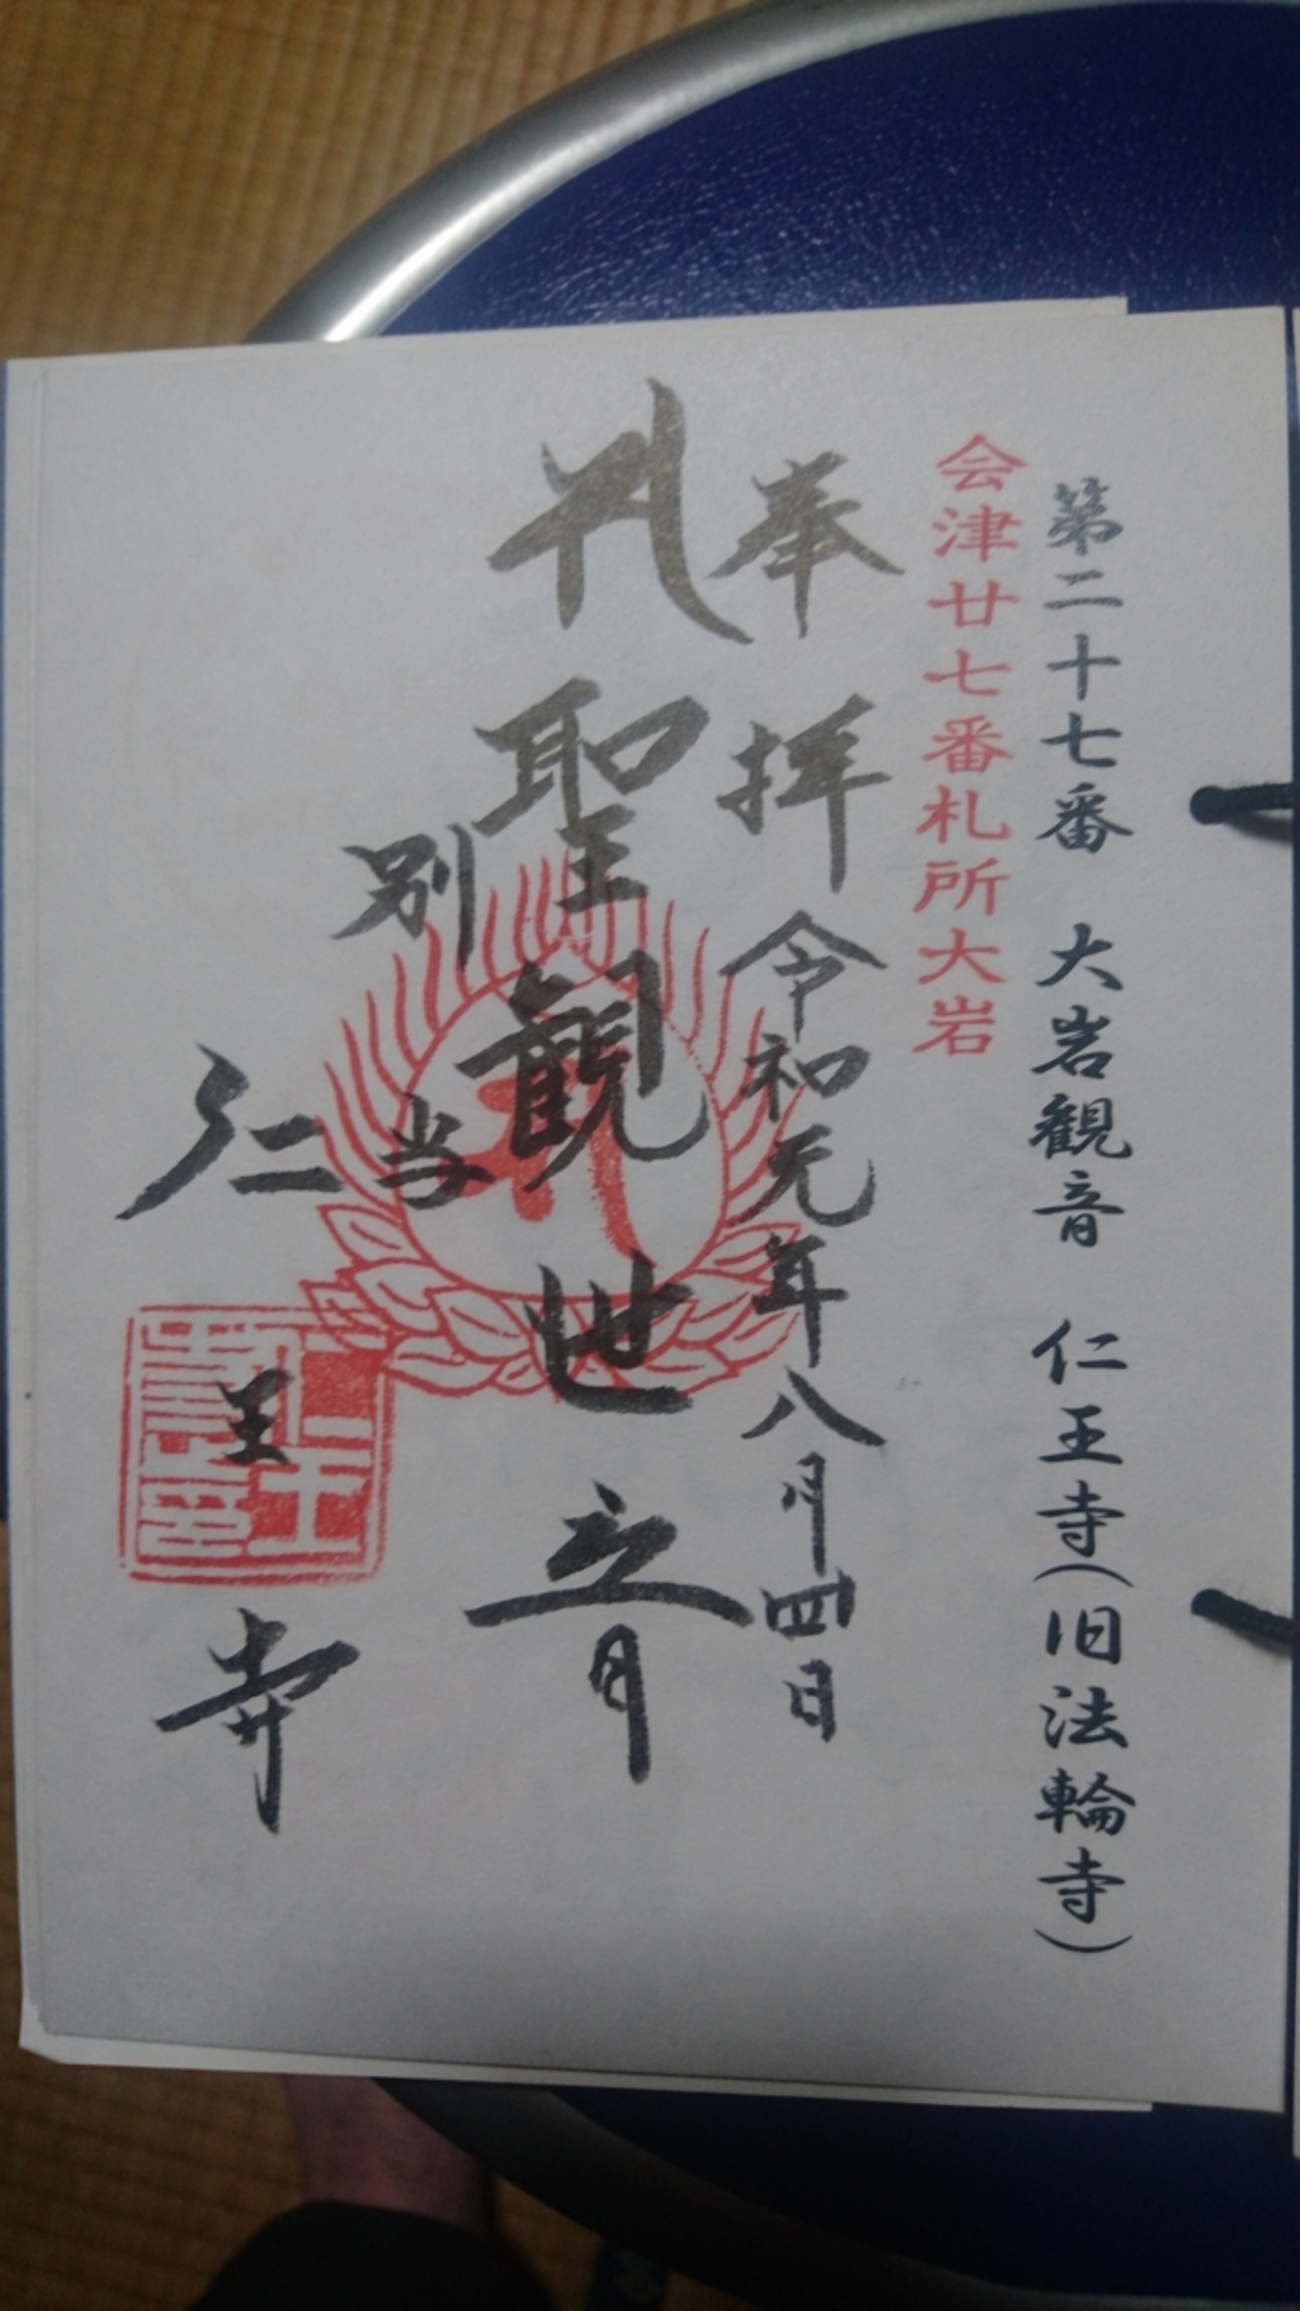 第二十七番 大岩観音 仁王寺(旧法輪寺)
会津廿七番札所大岩
奉拝 令和元年八月四日
聖観世音
別当
仁王寺